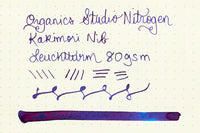 Organics Studio Nitrogen
Kakimori Nib
Leuchtturm 80gsm